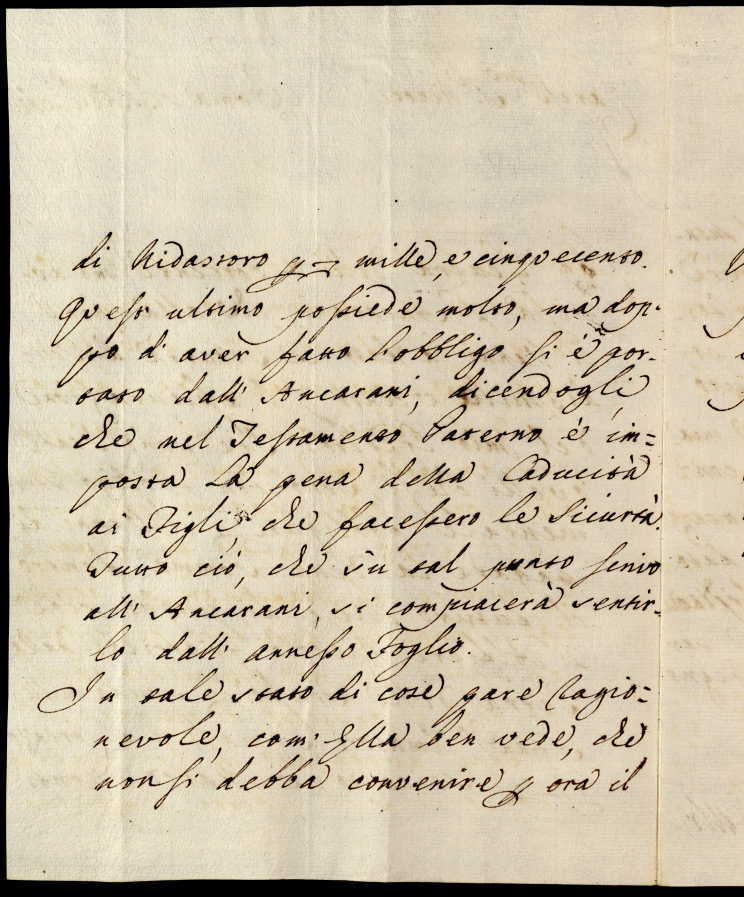 di Nidastoro per mille, e cinquecento.
Quest' ultimo possiede molto, ma dop-
po d' aver fatto l'obbligo si è por-
tato dall' Ancarani, dicendogli,
che nel Testamento Paterno è im=
posta la pena della Caducità
ai Figli, che facessero le Sicurtà.
Tutto ciò, che sù tal punto scrivo
all' Ancarani, si compiacerà sentir-
lo dall' annesso Foglio.
In tale stato di cose pare ragio=
nevole, com' Ella ben vede, che
non si debba convenire per ora il